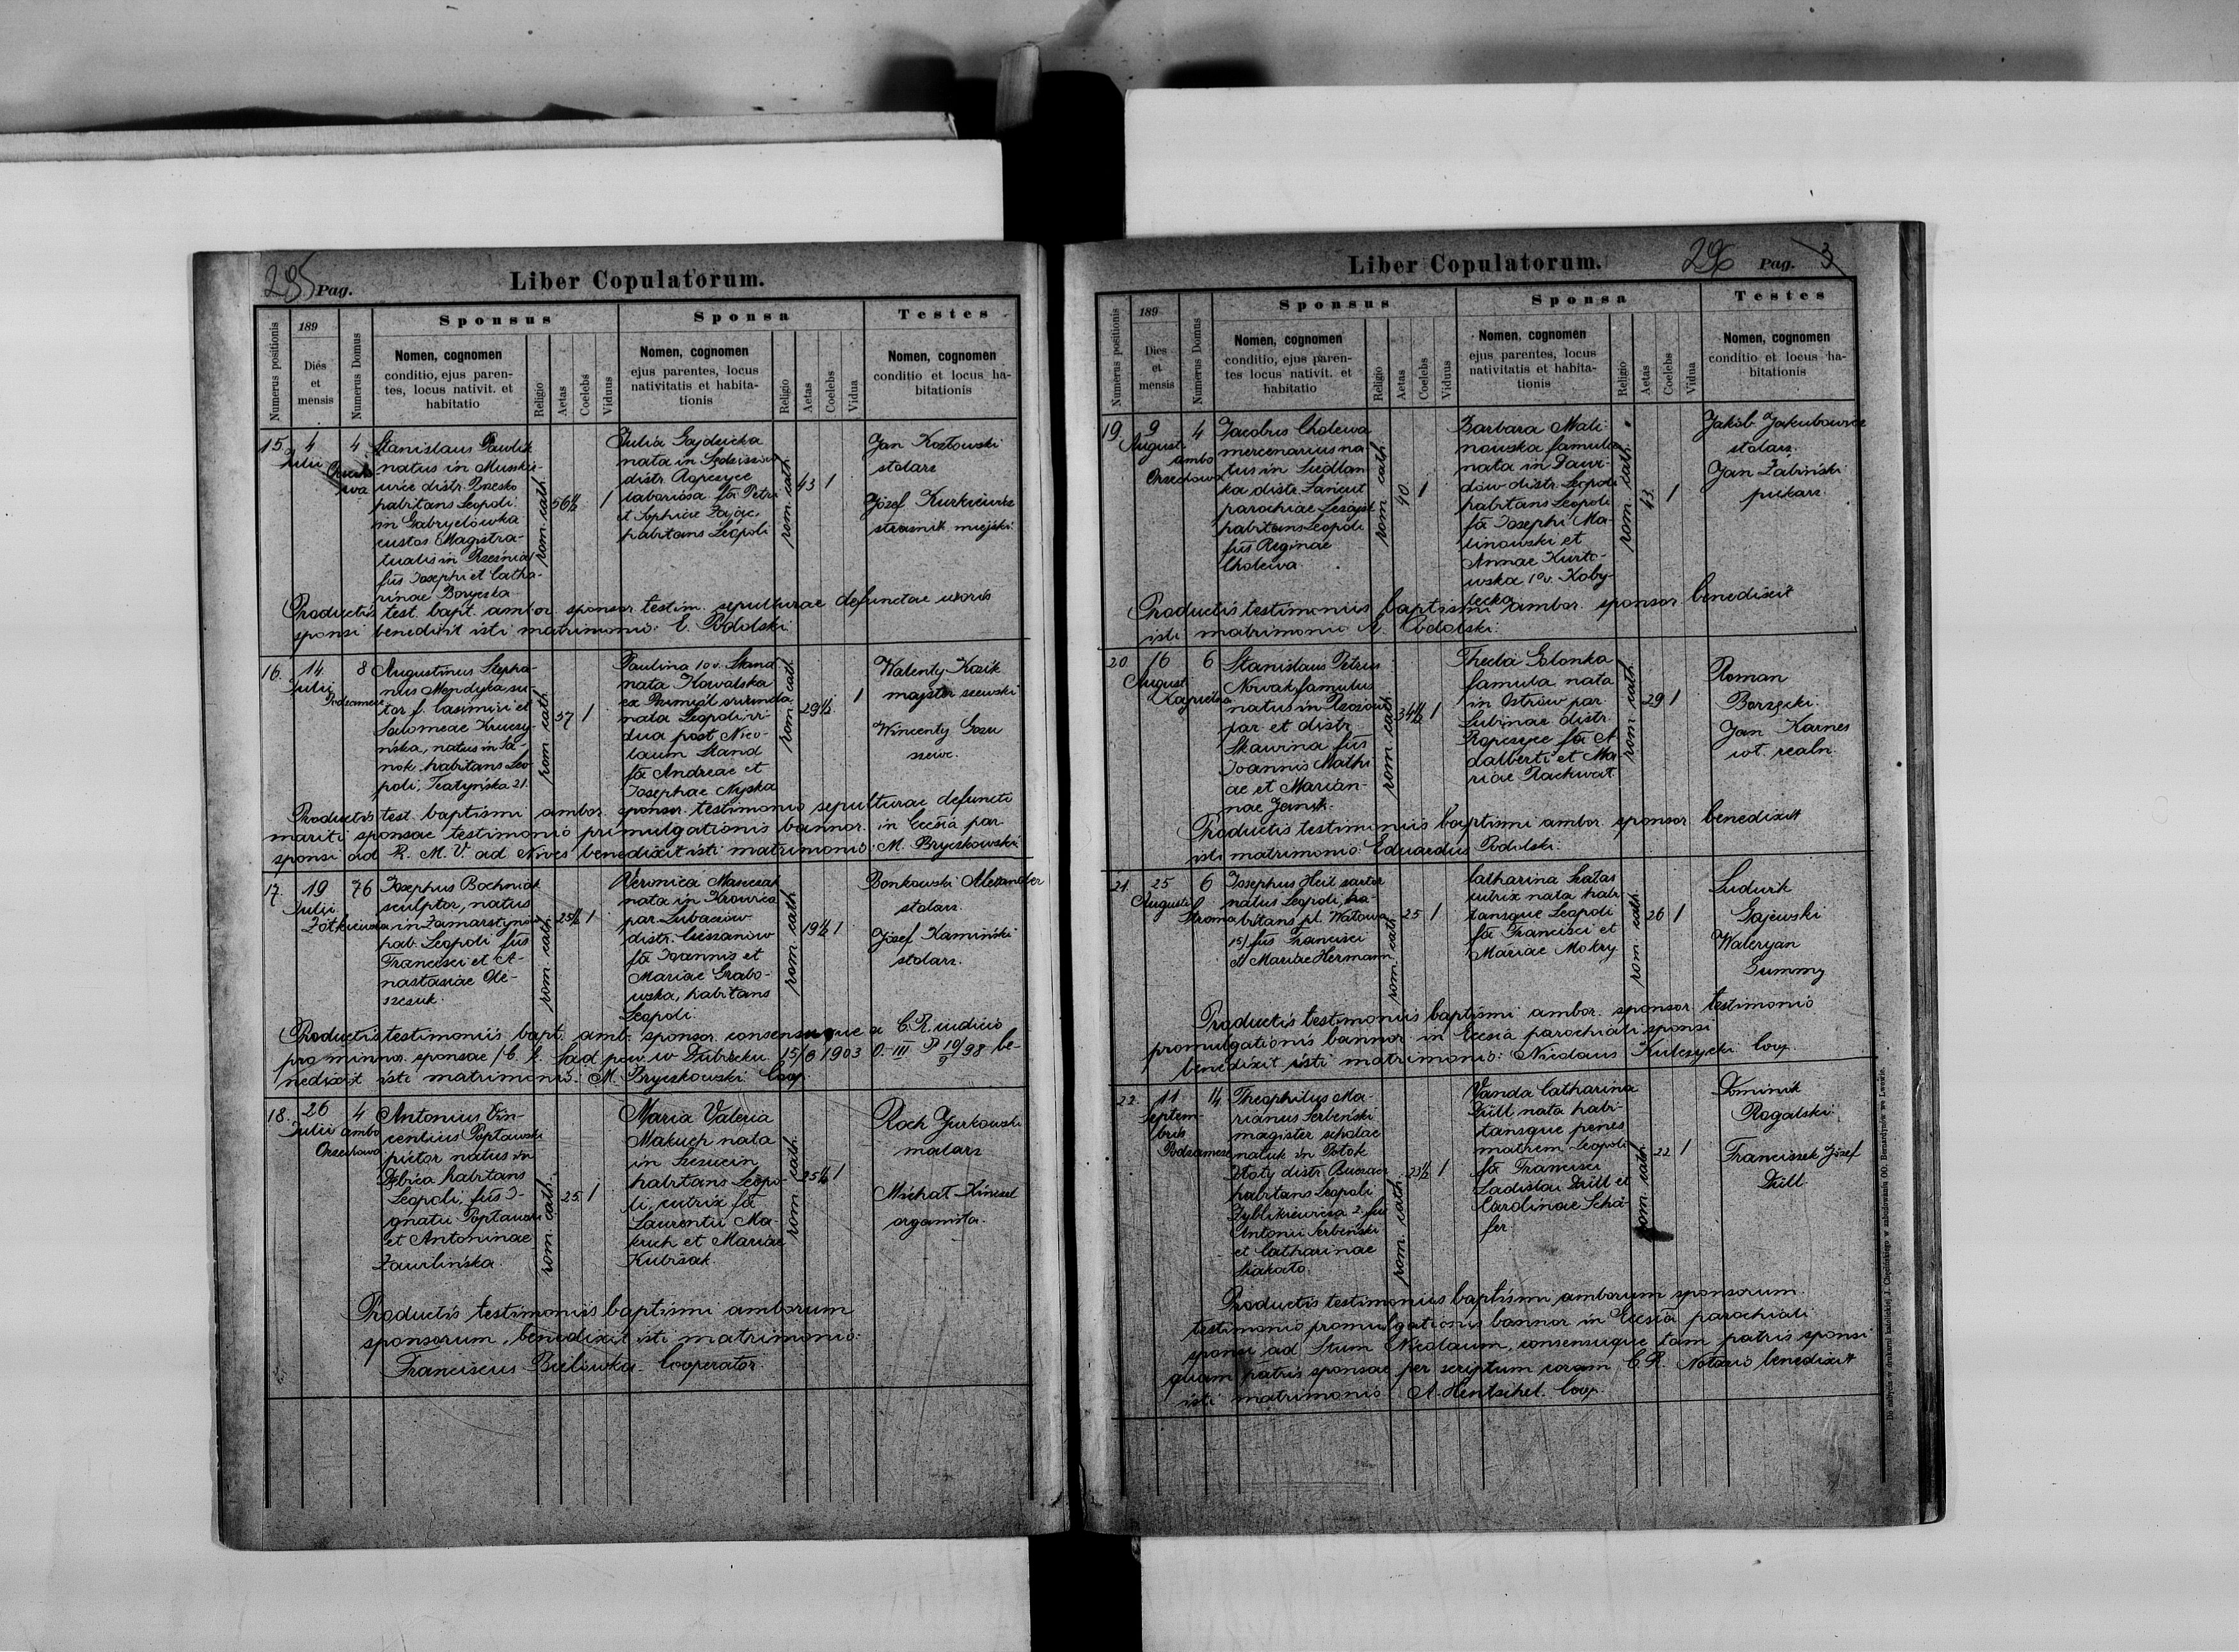 295 Pag.
Liber Copulatorum.
Numerus positionis
189
Dies et mensis
Numerus Domus
Sponsus
Nomen, cognomen
conditio, ejus paren-
tes, locus nativit. et
habitatio
Religio
Aetas
Coelebs
Viduus
Sponsa
Nomen, cognomen
ejus parentes, locus
nativitatis et habita-
tionis
Religio
Aetas
Coelebs
Vidua
Testes
Nomen, cognomen
conditio et locus ha-
bitationis
15.
4
Julii
4
Stanislaus Pawlik
natus in
distr. Brzesko
habitans Leopoli
in Gabryelówka
custos Magistra-
tualis in Rzeźnia
fus Josephi et Catha-
rinae Boryczka
rom. cath.
56½
1
Julia Gajdzicka
nata in Sędziszów
distr. Ropczyce
laboriosa fa Petri
et Sophiae Zając,
habitans Leopoli
rom. cath.
43
1
Jan Kozłowski
stolarz
Józef Kurkiewicz
strażnik miejski.
Productis test. bapt. ambor. sponsor. testim. sepulturae defunctae uxoris
sponsi benedixit isti matrimonio: E. Podolski
16.
14.
Julii
8
Podzamcze
Augustinus Stepha-
nus Mendyka su-
tor f. Casimiri et
Salomeae Kruczy-
ńska, natus in Sa-
nok, habitans Leo-
poli, Teatyńska 21.
rom. cath.
37
1
Paulina 1o v. Stand
nata Kowalska
ex Przemyśl oriunda
nata Leopoli vi-
dua post Nico-
laum Stand
fa Andreae et
Josephae Nyska
rom. cath.
29½
1
Walenty Kozik
majster szewski
Wincenty Gosu
szewc.
Productis test. baptismi ambor. sponsor. testimonio sepulturae defuncti
mariti sponsae testimonio primulgationis bannor. in Eccsiâ par.
sponsi ad B. M. V. ad Nives benedixit isti matrimonio: M. Bryczkowski.
17.
19
Julii
76
Żółkiewska
Josephus Bochniak
sculptor, natus
in Zamarstynów
hab. Leopoli fus
Francisci et A-
nastasiae Ole-
szczuk.
rom. cath.
25½
1
Veronica Maszczak
nata in Krowica
par. Lubaczów
distr. Cieszanów
fa Joannis et
Mariae Grabo-
wska, habitans
Leopoli
rom. cath.
19½
1
Bonkowski Alexander
stolarz.
Józef Kamiński
stolarz.
Productis testimoniis bapt. amb. sponsor. consensuque a C. R. iudicio
pro minnor. sponsae / C. k. Sąd pow. w Dubiecku 15/6 1903 O. III P 10/5 98 be-
nedixit isti matrimonio: M. Bryczkowski Coop.
18.
26
Julii
4
ambo
Orzechowa
Antonius Vin-
centius Popławski
pictor natus in
Dębica habitans
Leopoli, fus I-
gnatii Popławski
et Antoninae
Zawilińska
rom. cath.
25
1
Maria Valeria
Makuch nata
in Szczucin
habitans Leopo-
li, sutrix fa
Laurentii Ma-
kuch et Mariae
Kubisak.
rom. cath.
25½
1
Roch Jurkowski
malarz
Michał Kinzel
organista.
Productis testimoniis baptismi amborum
sponsorum, benedixit isti matrimonio:
Franciscus Bielówka Cooperator.
Liber Copulatorum.
296 Pag. 3
Numerus positionis
189
Dies
et
mensis
Numerus Domus
Sponsus
Nomen, cognomen
conditio, ejus paren-
tes locus nativit. et
habitatio
Religio
Aetas
Coelebs
Viduus
Sponsa
Nomen, cognomen
ejus parentes, locus
nativitatis et habita-
tionis
Religio
Aetas
Coelebs
Vidua
Testes
Nomen, cognomen
conditio et locus ha-
bitationis
19.
9
Augusti
4
ambo
Orzechowa
Jacobus Cholewa
mercenarius na-
tus in Siedlan-
ka distr. Łańcut
parochiae Leżajsk
habitans Leopoli
fus Reginae
Cholewa.
rom. cath.
40.
1
Barbara Mali-
nowska famula
nata in Dawi-
dów distr. Leopoli
habitans Leopoli
fa Josephi Ma-
linowski et
Annae Kurto-
wska 1o v. Koby-
lecka
rom. cath.
43.
1
Jakób Jakubowicz
stolarz.
Jan Żabiński
piekarz.
Productis testimoniis baptismi ambor. sponsor. benedixit
isti matrimonio E. Podolski.
20.
16
August
6
Kapielna
Stanislaus Petrus
Nowak famulus
natus in Rzozów
par. et distr.
Skawina fus
Joannis Mathi-
ae et Marian-
nae Janik.
rom. cath.
34½
1
Thecla Golonka
famula nata
in Ostrów par.
Lubinae distr.
Ropczyce fa A-
dalberti et Ma-
riae Rachwał
rom. cath.
29
1
Roman
Borzęcki
Jan Karnes
wł. realn.
Productis testimoniis baptismi ambor. sponsor. benedixit
isti matrimonio: Eduardus Podolski.
21.
25
Augusti
6
Stroma
Josephus Heil sartor
natus Leopoli, ha-
bitans pl. Wałowa
15/ fus Francisci
et Mariae Hermann
rom. cath.
25
1
Catharina Szałas
sutrix nata habi-
tansque Leopoli
fa Francisci et
Mariae Mokry
rom. cath.
26
1
Ludwik
Gajewski
Waleryan
Gummy
Productis testimoniis baptismi ambor. sponsor. testimonio
promulgationis bannor. in Eccsiâ parochiali sponsi
benedixit isti matrimonio: Nicolaus Kulczycki Coop.
22.
11
Septem-
bris
14
Podzamcze
Theophilus Ma-
rianus Serbeński
magister scholae
natus in Potok
Złoty distr. Buczacz
habitans Leopoli
Zyblikiewicza 2. fus
Antonii Serbeński
et Catharinae
Siakato.
rom. cath.
23½
1
Vanda Catharina
Düll nata habi-
tansque penes
mathem. Leopoli
fa Francisci
Ladislai Düll et
Carolinae Schä-
fer.
rom. cath.
22
1
Dominik
Rogalski
Franciszek Józef
Düll
Productis testimoniis baptismi amborum sponsorum.
testimonio promulgationis bannor. in Eccsiâ parochiali
sponsi ad Stum Nicolaum, consensuque tam patris sponsi
quam patris sponsae per scriptum coram C. R. Notario benedixit
isti matrimonio: A. Hentschel. Coop.
Do nabycia w drukarni katolickiej J. Chęcińskiego w zabudowaniu OO. Bernardynów we Lwowie.